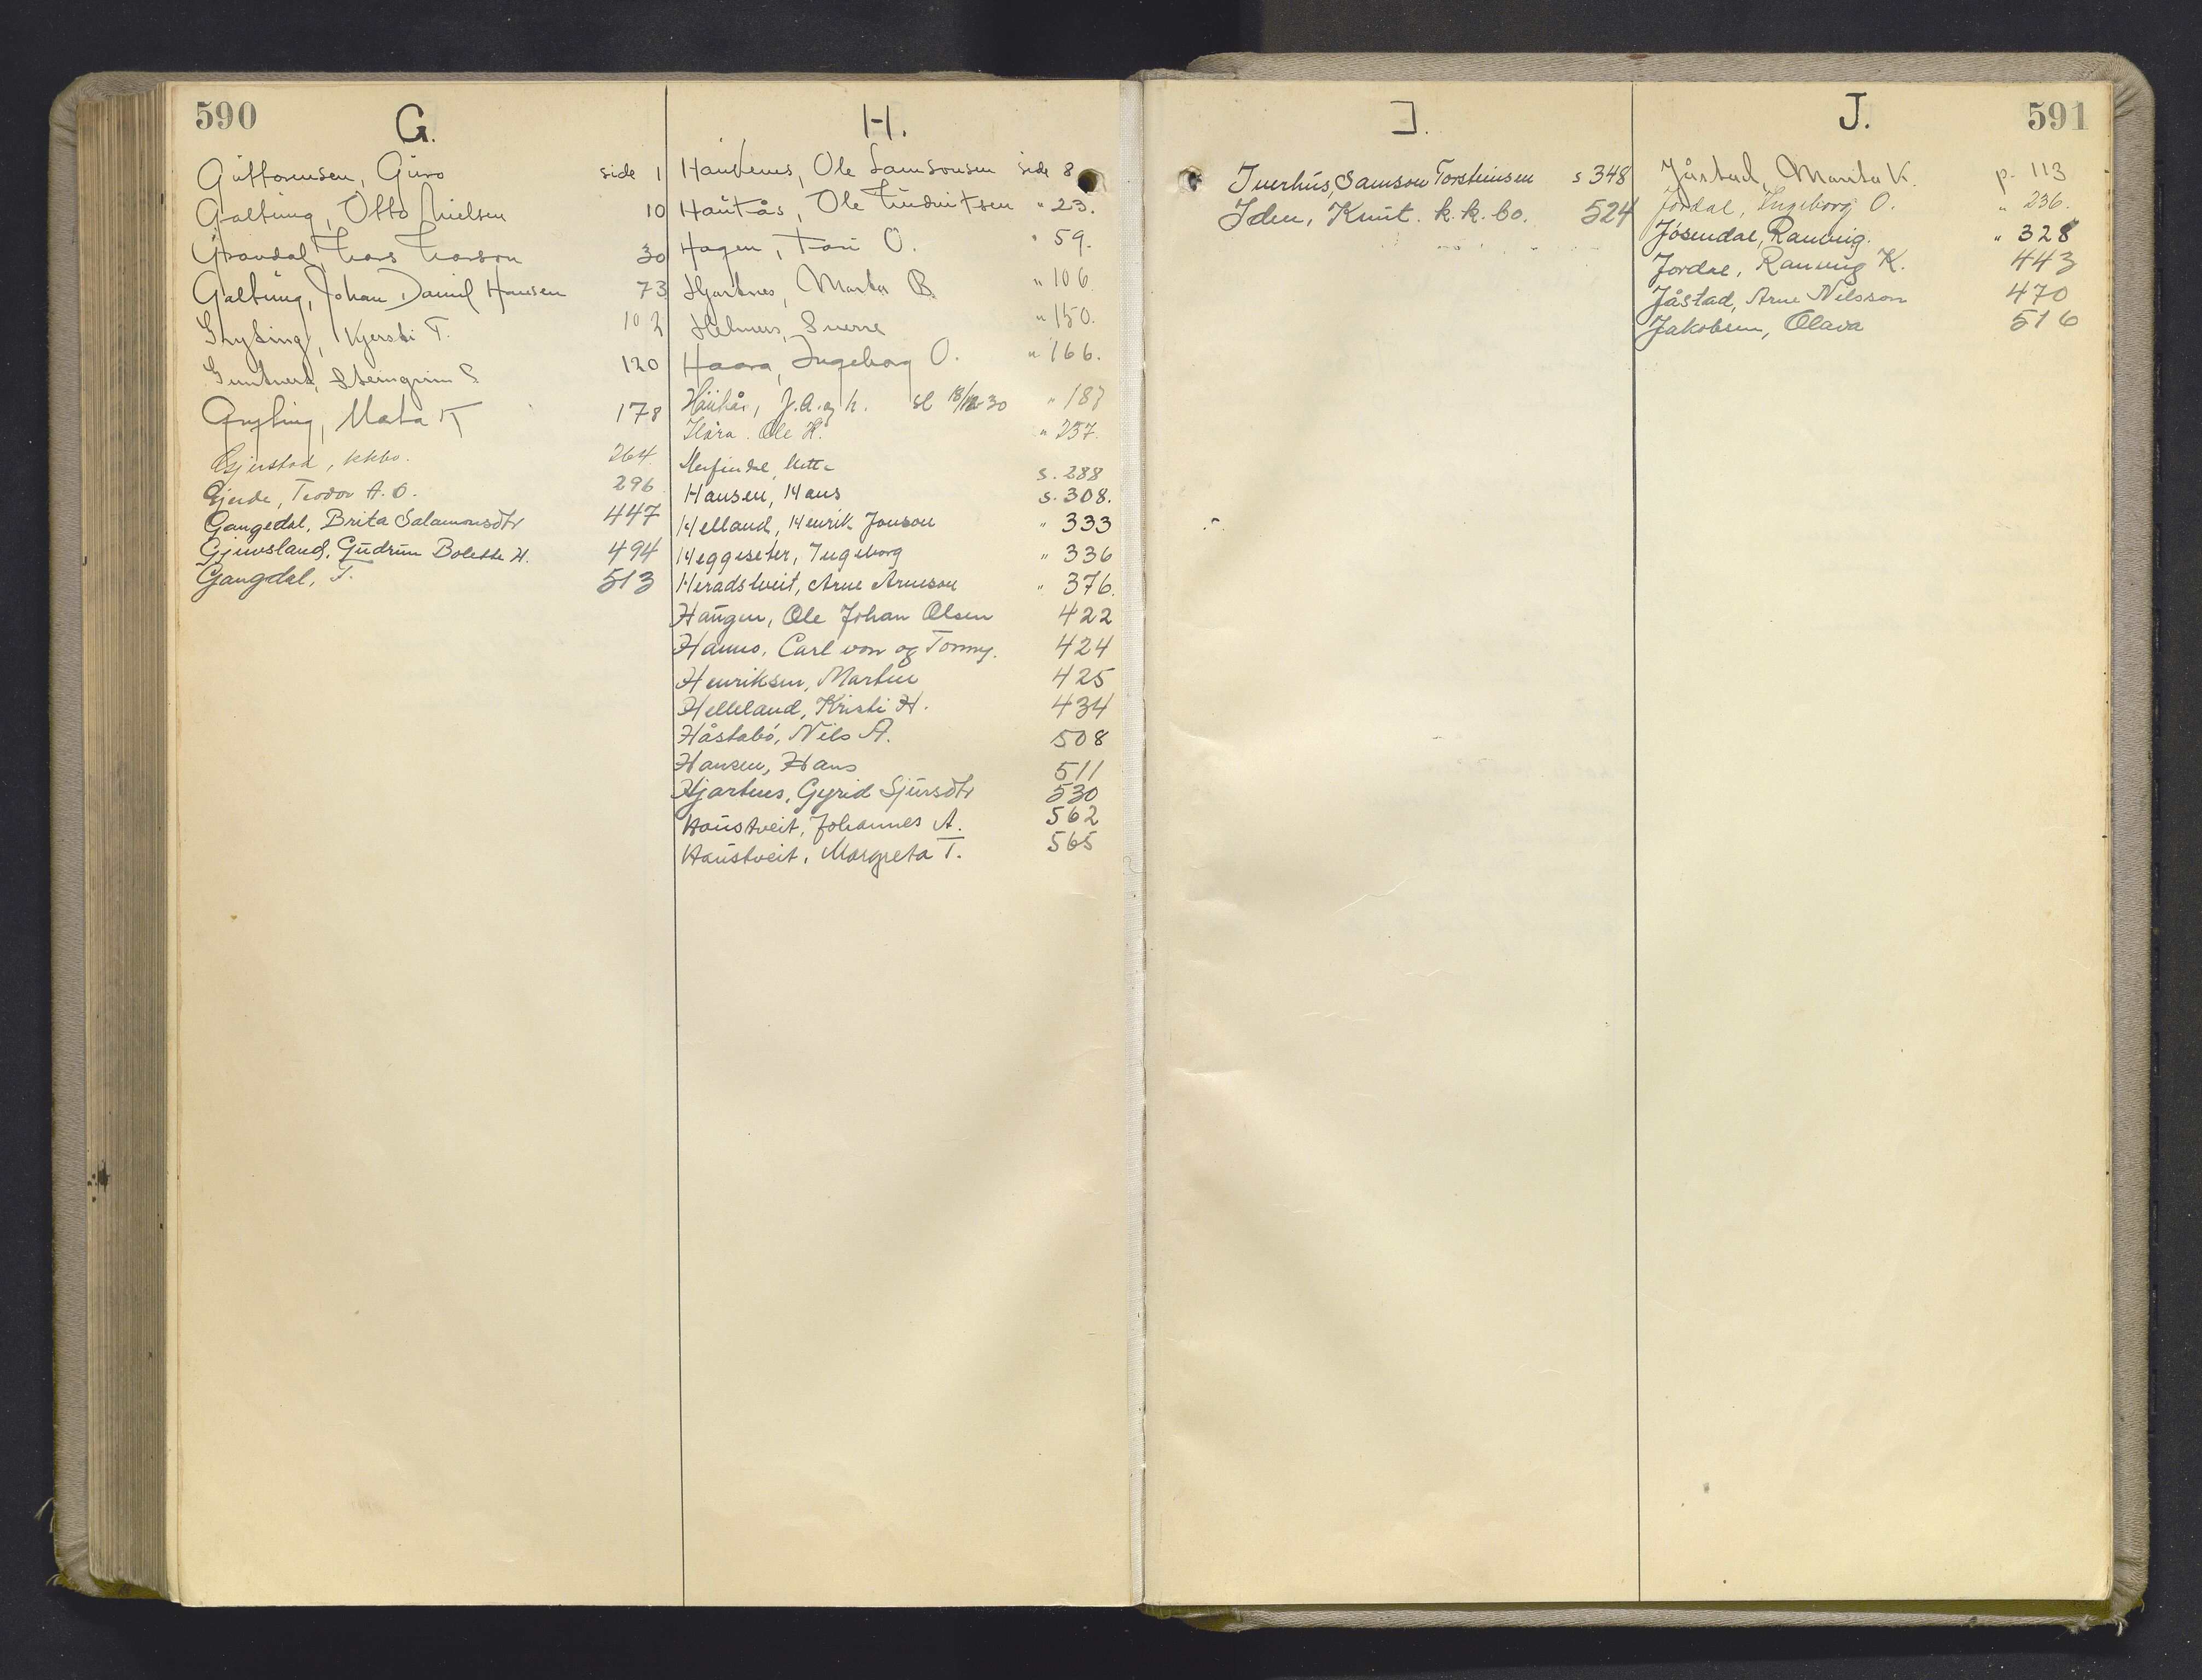 590
G.
Guttormsen, Guro side 1
Galtung, Otto Nielsen 10
Gravdal, Lars Larson 30
Galtung, Johan Daniel Hansen 73
Grysting, Kjersti T. 102
Steingrim S. 120
Marta K 178
Gjerstad, kkbo. 264.
Gjerde, Teodor A. O. 296
Gangedal, Brita Salamonsdtr 447
Gjuvsland, Gudrun Bolette H. 494
Gangdal, T. 513
H.
Haukenes, Ole Samsonsen side 8
Hautås, Ole Lindvitsen " 23.
Hagen, Lari O. " 59.
Hjartnes, Marta B. " 106
Helmers, Sverre " 150.
Haara, Ingeborg O. " 166.
Haukås, J. A. og h. sl 18/12-30 " 187
Håra. Ole H. " 257.
s. 288
Hansen, Hans s. 308.
Helland, Henrik Jonson " 333
Heggeseter, Ingeborg " 336
Heradstveit, Arne Arneson " 376.
Haugen, Ole Johan Olsen 422
Hanno, Carl von og Tonny. 424
Henriksen, Martin 425
Helleland, Kristi H. 434
Håstabø, Nils A. 508
Hansen, Hans 511
Hjartnes, Gyrid Sjursdtr 530
Haustveit, Johannes A. 562
Haustveit, Margreta T. 565
I.
Iverhus, Samson Torsteinsen s 348
Iden, Knut. k. k. bo. 524
J.
591
Jåstad, Marita K. p. 113
Jordal, Ingeborg O. " 236.
Jösendal, Ranveig. " 328
Jordal, Ranveig K. 443
Jåstad, Arne Nilsson 470
Jakobsen, Olava 516